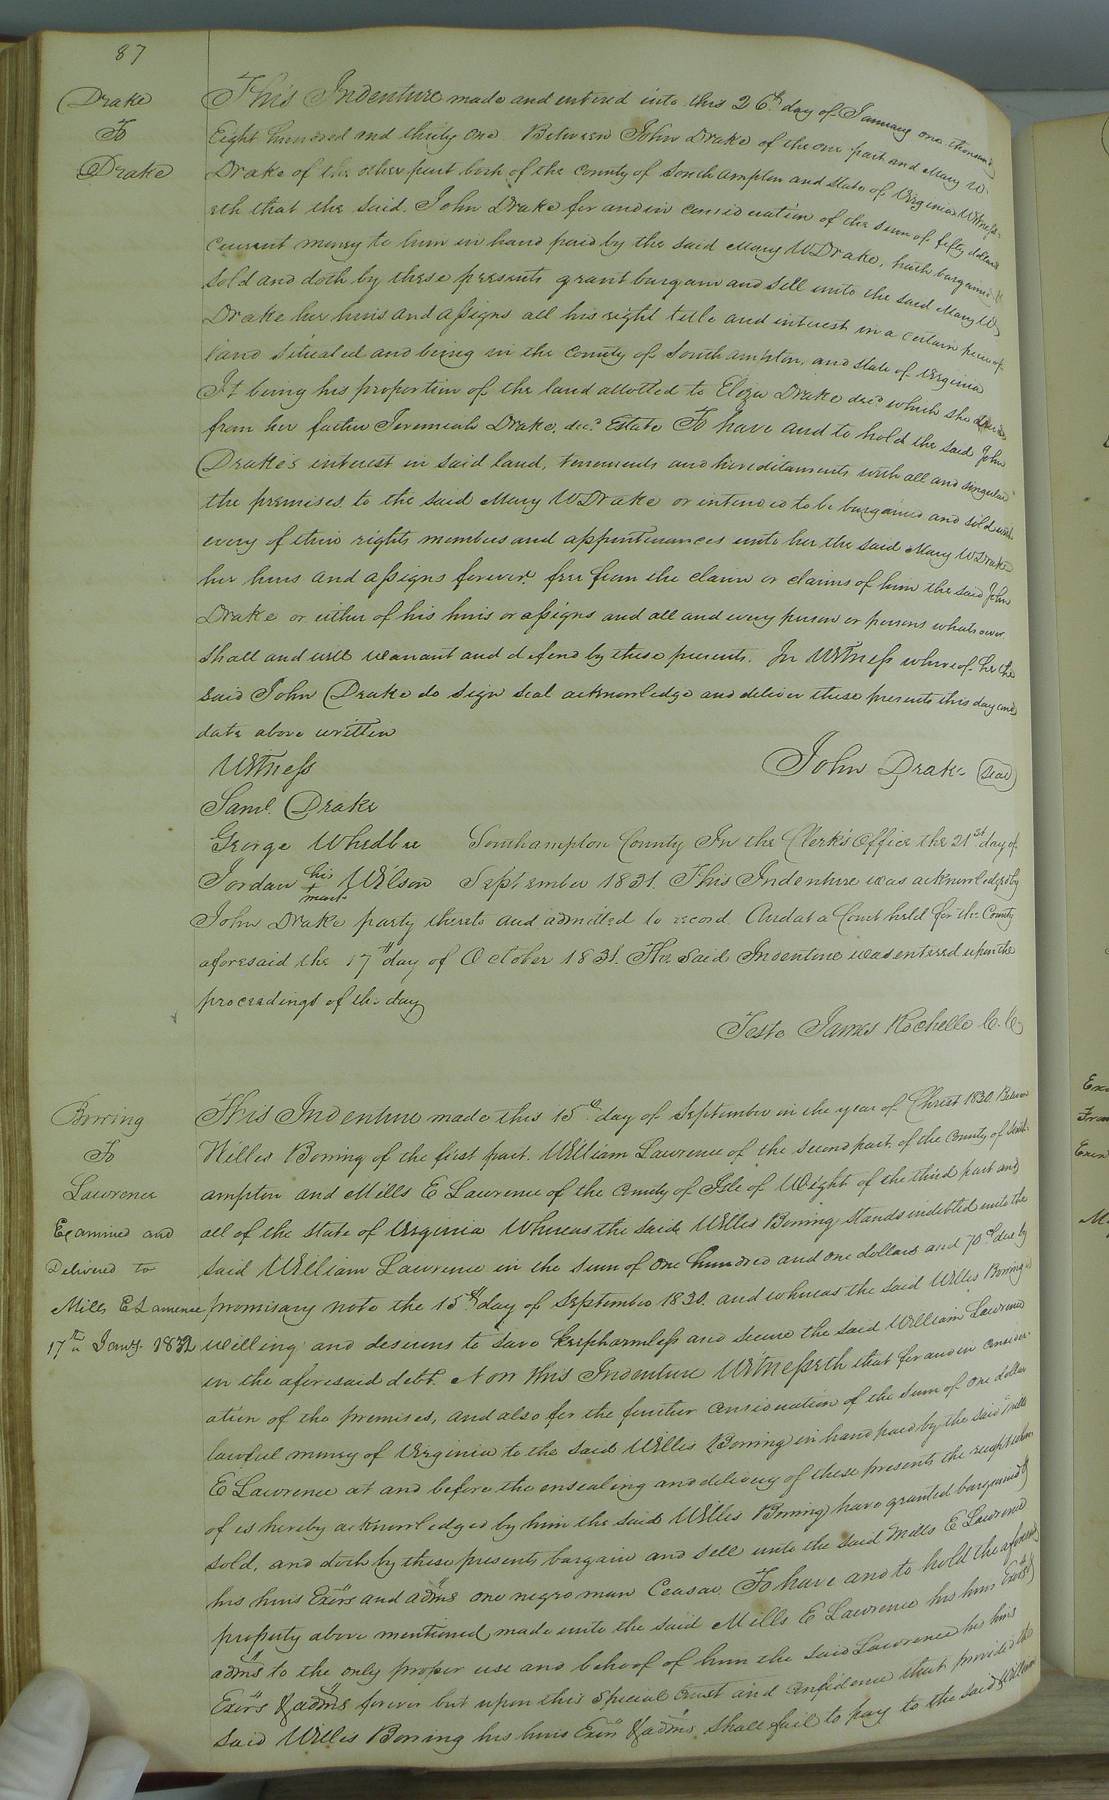 87
Drake
To
Drake
This Indenture made and entered into this 26th day of January one thousand
Eight hundred and thirty one Between John Drake of the one part and Mary W.
Drake of the other part both of the County of Southampton and State of Virginia Witness-
eth that the said John Drake for and in consideration of the sum of fifty dollars
current money to him in hand paid by the said Mary W Drake, hath bargained &
sold and doth by these presents grant bargain and sell unto the said Mary W
Drake her heirs and assigns all his right title and interest in a certain piece of
land situated and being in the County of Southampton, and State of Virginia
It being his proportion of the land allotted to Eliza Drake decd which she
from her father Jeremiah Drake, decd Estate To have and to hold the said John
Drake's interest in said land, tenements and hereditaments with all and singular
the premises to the said Mary W Drake or intended to be bargained and sold with
every of their rights members and appurtenances unto her the said Mary W Drake
her heirs and assigns forever free from the claim or claims of him the said John
Drake or either of his heirs or assigns and all and every person or persons whatsoever
shall and will warrant and defend by these presents. In Witness whereof he the
said John Drake do sign seal acknowledge and deliver these presents this day and
date above written
Witness
John Drake Seal
Saml. Drake
George Whedbee Southampton County In the Clerk's Office the 21st day of
Jordan his + mark Wilson September 1831. This Indenture was acknowledged by
John Drake party thereto and admitted to record And at a Court held for the County
aforesaid the 17th day of October 1831. The said Indenture was entered upon the
proceedings of the day
Teste James Rochelle C.C.
Boming
To
Lawrence
Examined and
Delivered to
Mills E Lawrence
17th Jany. 1832
This Indenture made this 15th day of September in the year of Christ 1830 Between
Willis Boming of the first part. William Lawrence of the second part of the County of South-
ampton and Mills E Lawrence of the County of Isle of Wight of the third part and
all of the State of Virginia Whereas the said Willis Boming stands indebted unto the
said William Lawrence in the sum of one hundred and one dollars and 70 cts due by
promisary note the 15th day of September 1830. and whereas the said Willis Boming is
willing and desirous to save keep harmless and secure the said William Lawrence
in the aforesaid debt. Now this Indenture Witnesseth that for and in consider-
ation of the premises, and also for the further consideration of the sum of one dollar
lawful money of Virginia to the said Willis Boming in hand paid by the said Mills
E Lawrence at and before the ensealing and delivery of these presents the receipt where
of is hereby acknowledged by him the said Willis Boming have granted bargained &
sold, and doth by these presents bargain and sell unto the said Mills E Lawrence
his heirs Exors and adms one negro man Ceasar To have and to hold the aforesaid
property above mentioned, made unto the said Mills E Lawrence his heirs Exors &
adms to the only proper use and behoof of him the said Lawrence his heirs
Exors & adms forever but upon this special trust and confidence that provided the
said Willis Boming his heirs Exors & adms, shall fail to pay to the said William